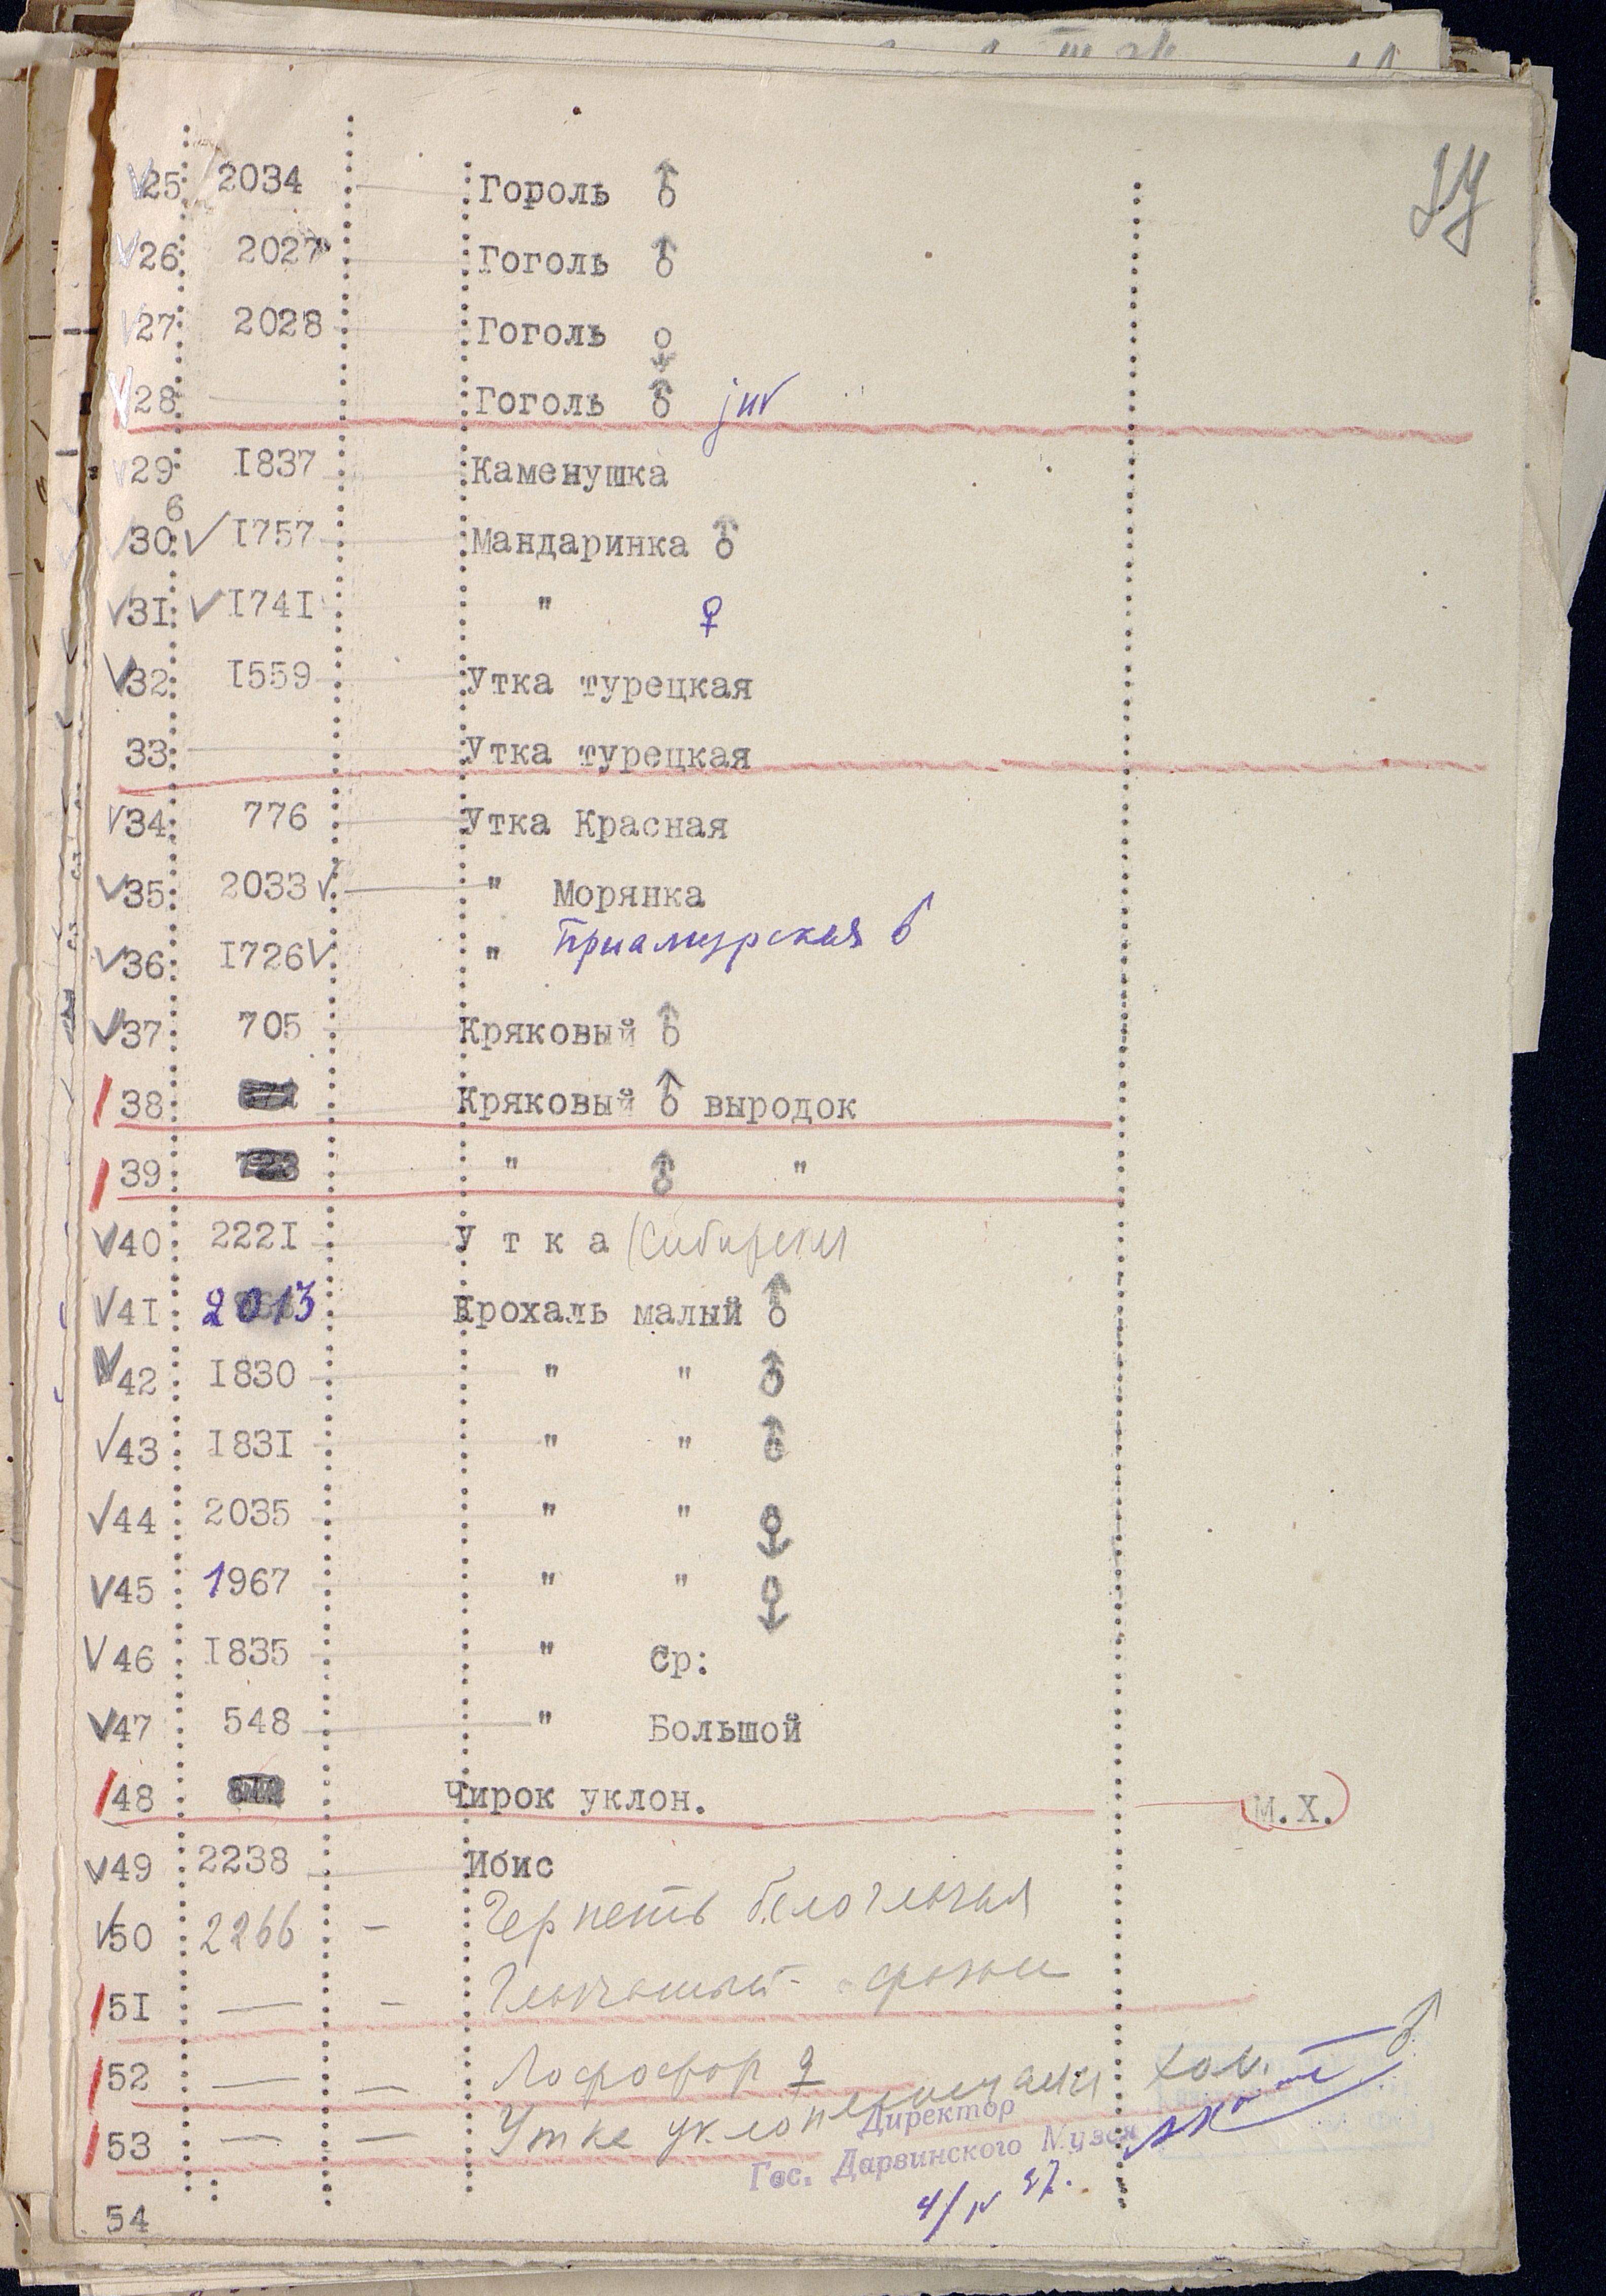 25 2034 Гороль ♂
26 2027 Гоголь ♂
27 2028 Гоголь ♀
28 Гоголь ♂ juv
29 1837 Каменушка
6
30 1757 Мандаринка ♂
31 1741 " ♀
32 1559 Утка турецкая
33 Утка турецкая
34 776 Утка Красная
35 2033 " Морянка
36 1726 " Приамурская ♂
37 705 Кряковый ♂
38 Кряковый ♂ выродок
39 723 " ♂ "
40 2221 У т к а (Сибирская
41 2013 Крохаль малый ♂
42 1830 " " ♂
43 1831 " " ♂
44 2035 " " ♀
45 1967 " " ♀
46 1835 " Ср:
47 548 " Большой
48 Чирок уклон. М.Х.
49 2238 Ибис
50 2266 - Чернеть белоглазая
51 — - фазан
52 — — Лофофор ♀
53 — — Утка уклон
Директор
Гос. Дарвинского Музея
4/IV 37.
54